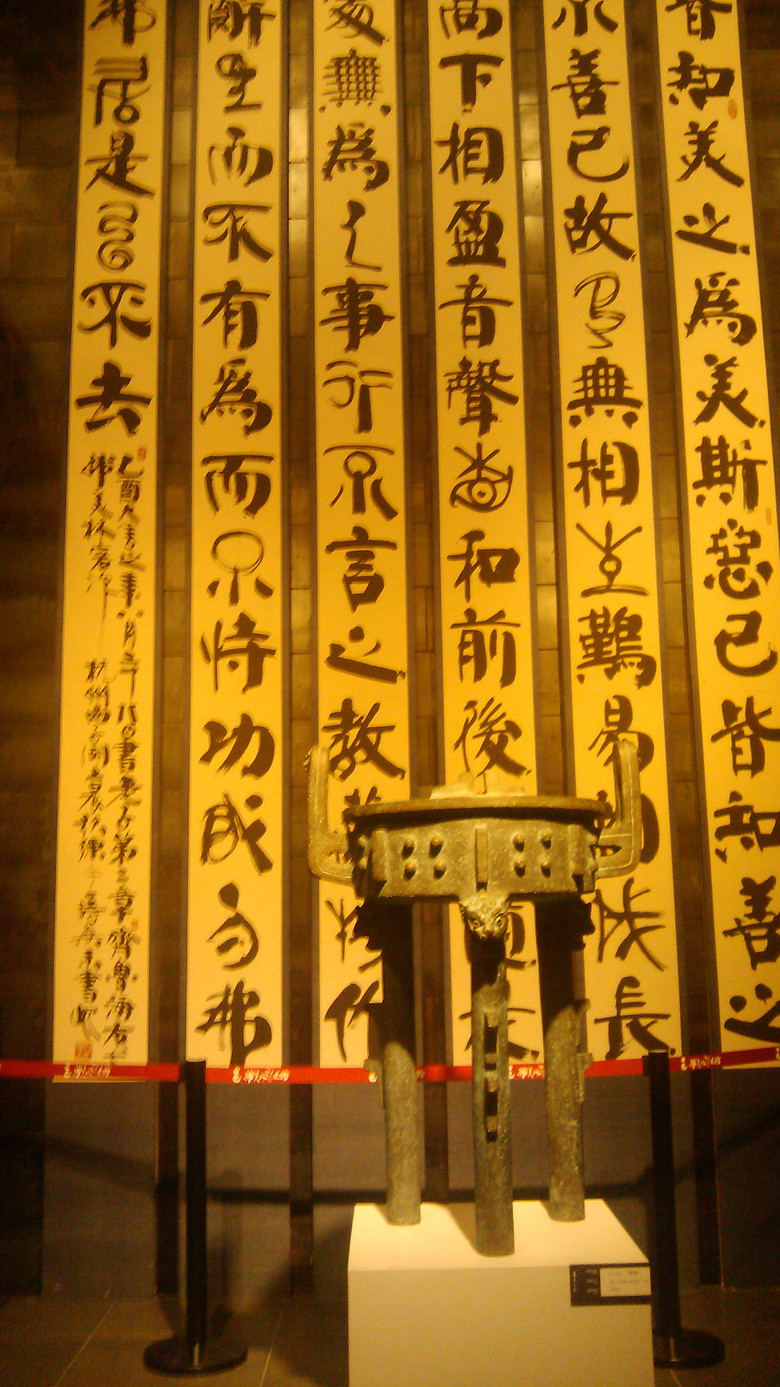 皆知美之為美斯惡已皆知善之
不善已故有無相生難易相成長
高下相盈音聲相和前後
處無為之事行不言之教萬物作
辭生而不有為而不恃功成而弗
弗居是以不去
乙酉 之年八月二十八日書老子第二章齊魯海右
韓美林 杭州西 書